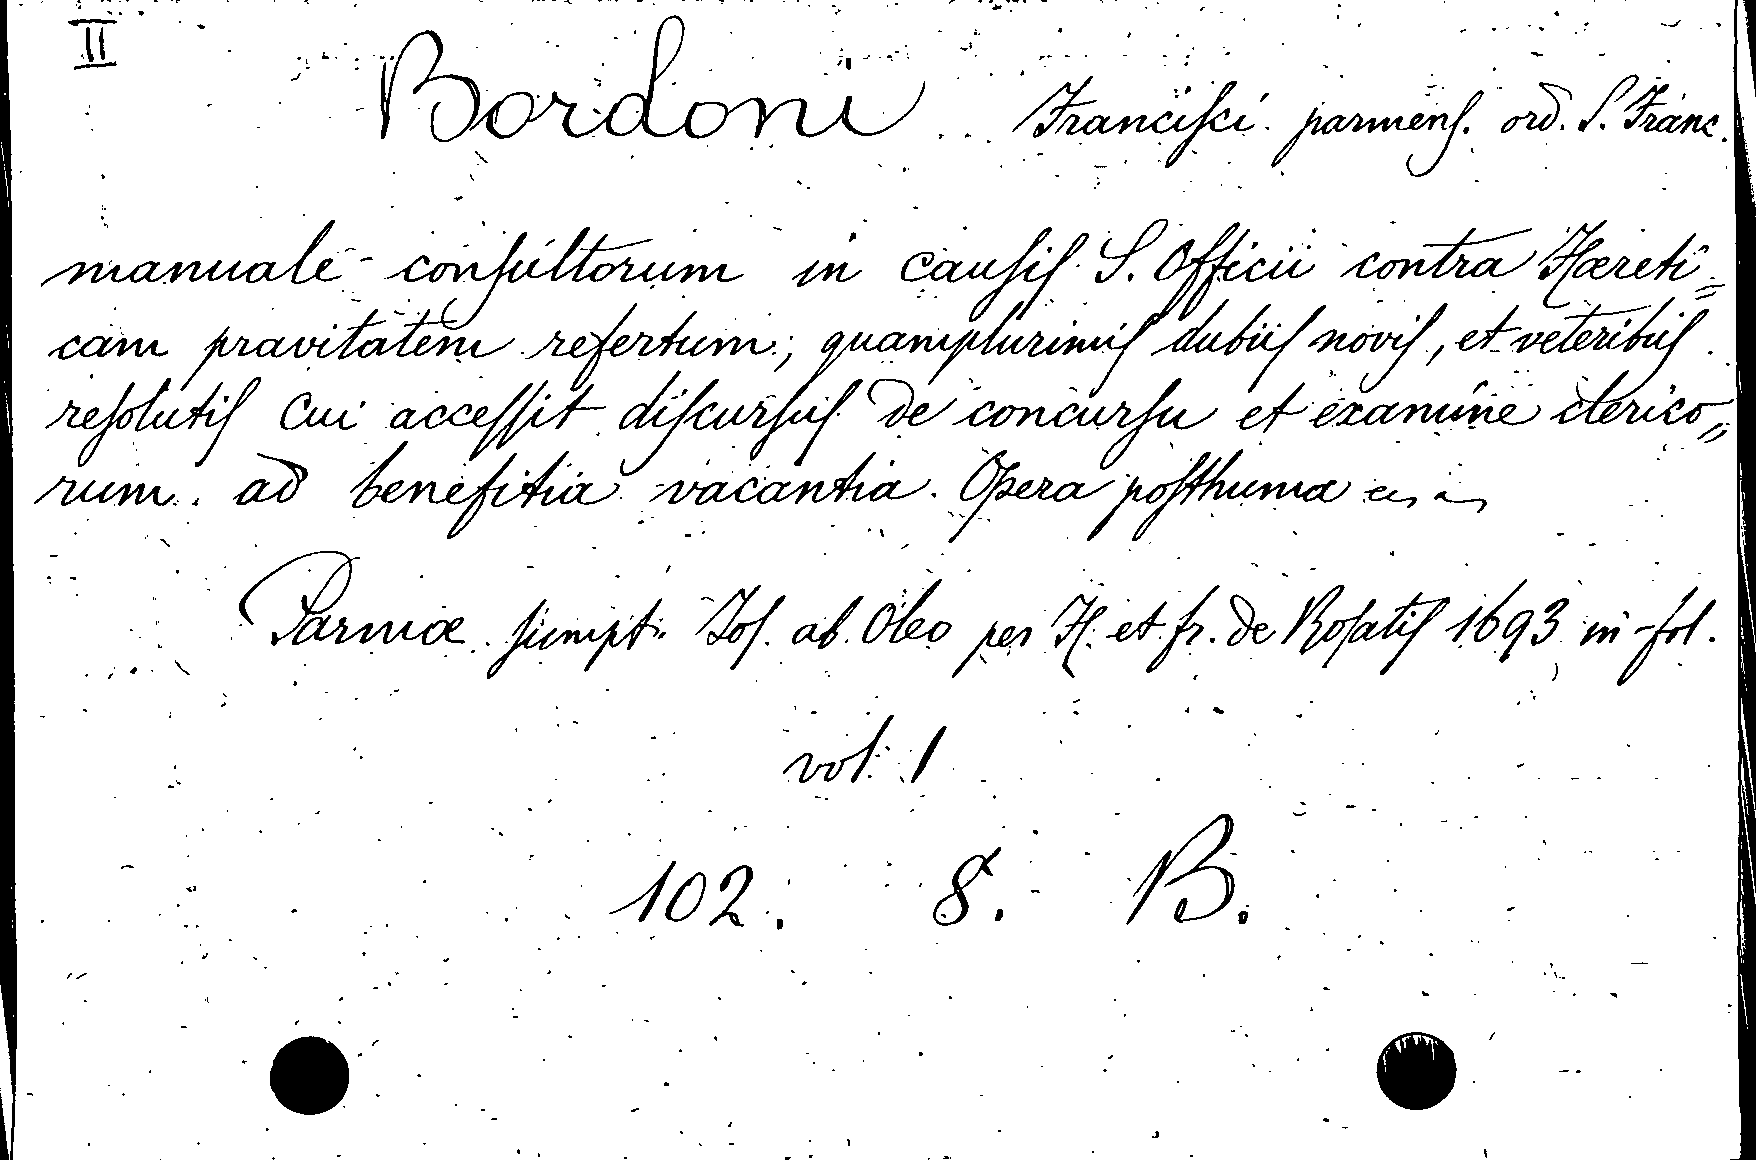 II
Bordoni Francisci parmens. ord. S. Franc.
manuale consultorum in causis S. Officii contra Hæreti=
cam pravitatem refertum; quamplurimis dubiis novis, et veteribus
resolutis cui accessit discursus de concursu et examine clerico„
rum ad benefitia vacantia. Opera posthuma
Parmæ sumpt. Jos. ab Oleo per H. et fr. de Rosatis 1693 in-fol.
vol. 1
102. 8. B.